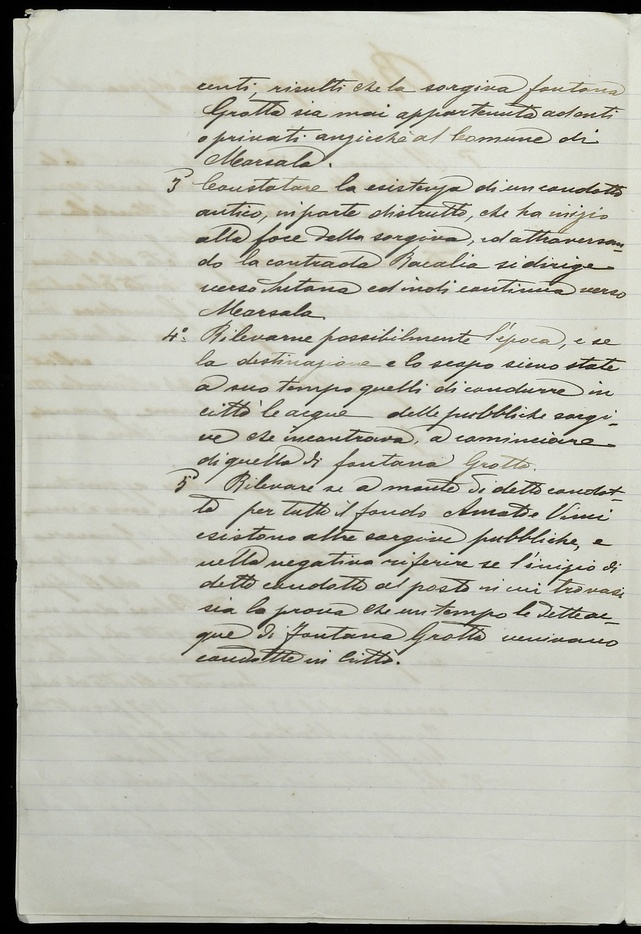 centi, risulti che la sorgiva fontana
Grotta sia mai appartenuta ad enti
o privati anzicchè al Comune di
Marsala.
3° Constatare la esistenza di un condotto
antico, in parte distrutto, che ha inizio
alla foce della sorgiva, ed attraversan-
do la contrada Bacalia si dirige
verso ed indi continua verso
Marsala
4° Rilevarne possibilmente l'epoca, e se
la destinazione e lo scopo sieno state
a suo tempo quelli di condurre in
città le acque delle pubbliche sorgi-
ve che incontrava, a cominciare
di quella di fontana Grotta.
5° Rilevare se a monte di detto condot-
to per tutto il fondo Amato Vinci
esistono altre sorgive pubbliche, e
nella negativa riferire se l'inizio di
detto condotto al posto in cui trovasi
sia la prova che un tempo le dette ac-
que di Fontana Grotta venivano
condotte in Città.